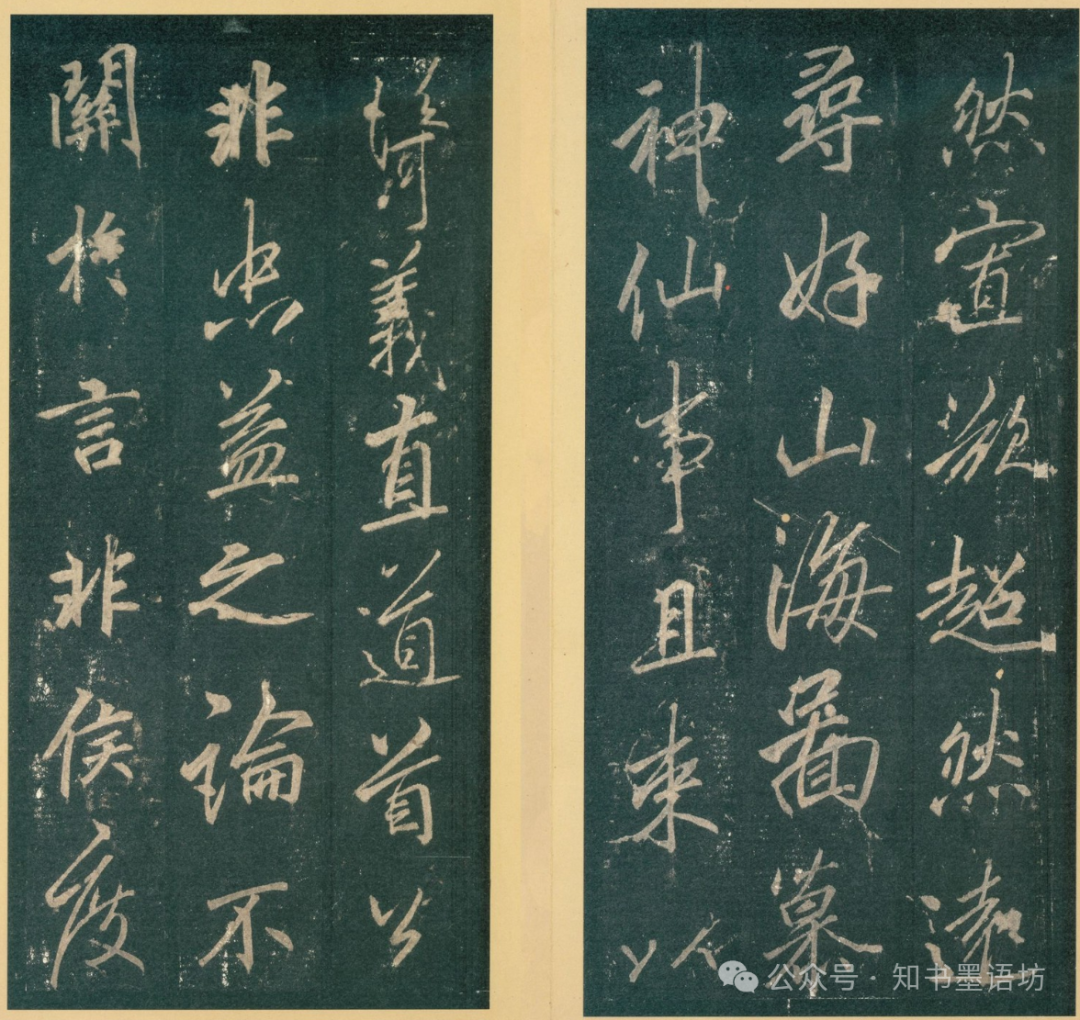 然欲超然遠
尋好山海圖慕
神仙事且束以
義直道首公
非忠益之論不
關於言非侯度
公众号·知书墨语坊